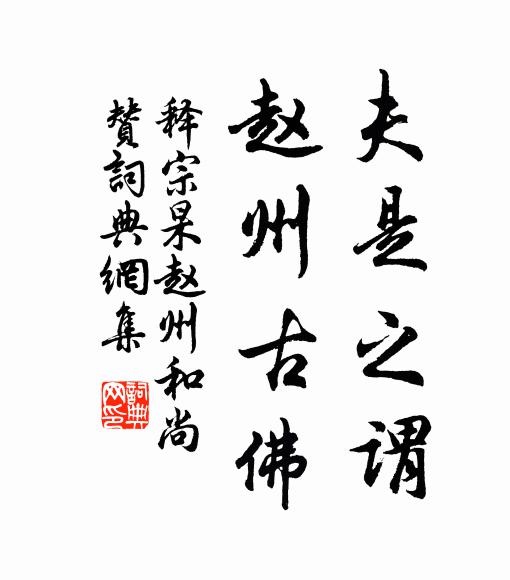 夫是之谓
赵州古佛
释宗杲赵州和尚
赞詞典網集
詞典网印